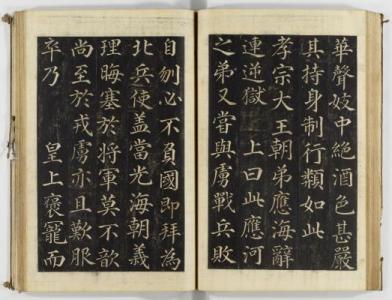 華聲妓中絶酒色甚嚴
其持身制行類如此
孝宗大王朝弟應海辭
連逆獄　上曰此應河
之弟又嘗與虜戰兵敗
自刎必不負國即拜為
北兵使盖當光海朝義
理晦塞於將軍莫不歆
尚至於戎虜亦且歎服
卒乃　皇上褒寵而